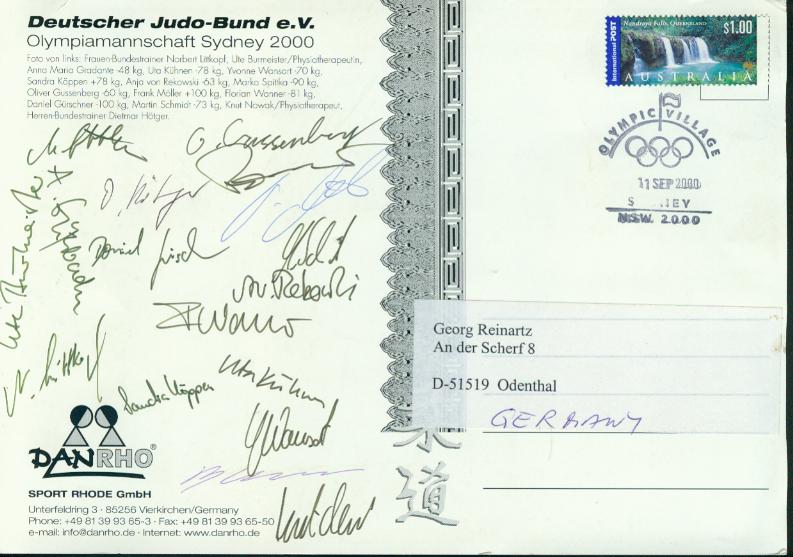 Deutscher Judo-Bund e.V.
Olympiamannschaft Sydney 2000
Foto von links: Frauen-Bundestrainer Norbert Littkopf, Ute Burmeister/Physiotherapeutin,
Anna Maria Gradante -48 kg, Uta Kühnen -78 kg, Yvonne Wansart -70 kg,
Sandra Köppen +78 kg, Anja von Rekowski -63 kg, Marko Spittka -90 kg,
Oliver Gussenberg -60 kg, Frank Möller +100 kg, Florian Wanner -81 kg,
Daniel Gürschner -100 kg, Martin Schmidt -73 kg, Knut Nowak/Physiotherapeut,
Herren-Bundestrainer Dietmar Hötger.
O. Gussenberg
Ute Burmeister
Daniel
A.v.Rekowski
F Wanner
N. Littkopf
Sandra Köppen
Uta Kühnen
Y Wansart
DANRHO®
SPORT RHODE GmbH
Unterfeldring 3 · 85256 Vierkirchen/Germany
Phone: +49 81 39 93 65-3 · Fax: +49 81 39 93 65-50
e-mail: info@danrho.de · Internet: www.danrho.de
柔
道
Nandroya Falls, Queensland
$1.00
International POST
AUSTRALIA
OLYMPIC VILLAGE
11 SEP 2000
S NEY
N.S.W. 2000
Georg Reinartz
An der Scherf 8
D-51519 Odenthal
GERMANY